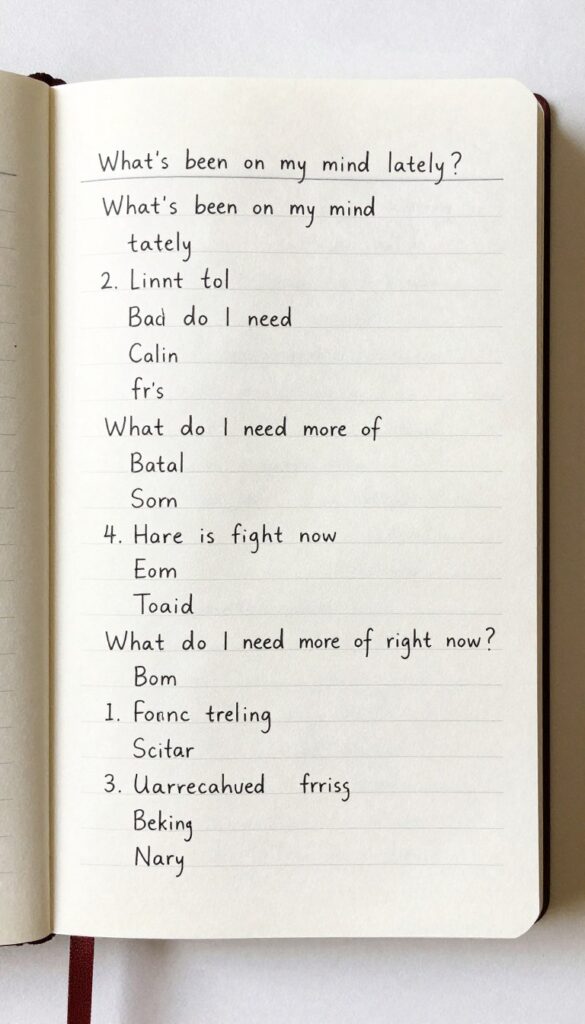 What's been on my mind lately?
What's been on my mind
tately
2. Linnt tol
Bad do I need
Calin
fr's
What do I need more of
Batal
Sorn
4. Hare is fight now
Eom
Toaid
What do I need more of right now?
Bom
1. Fonnc treling
Scitar
3. Uarrecahued frrisg
Beking
Nary